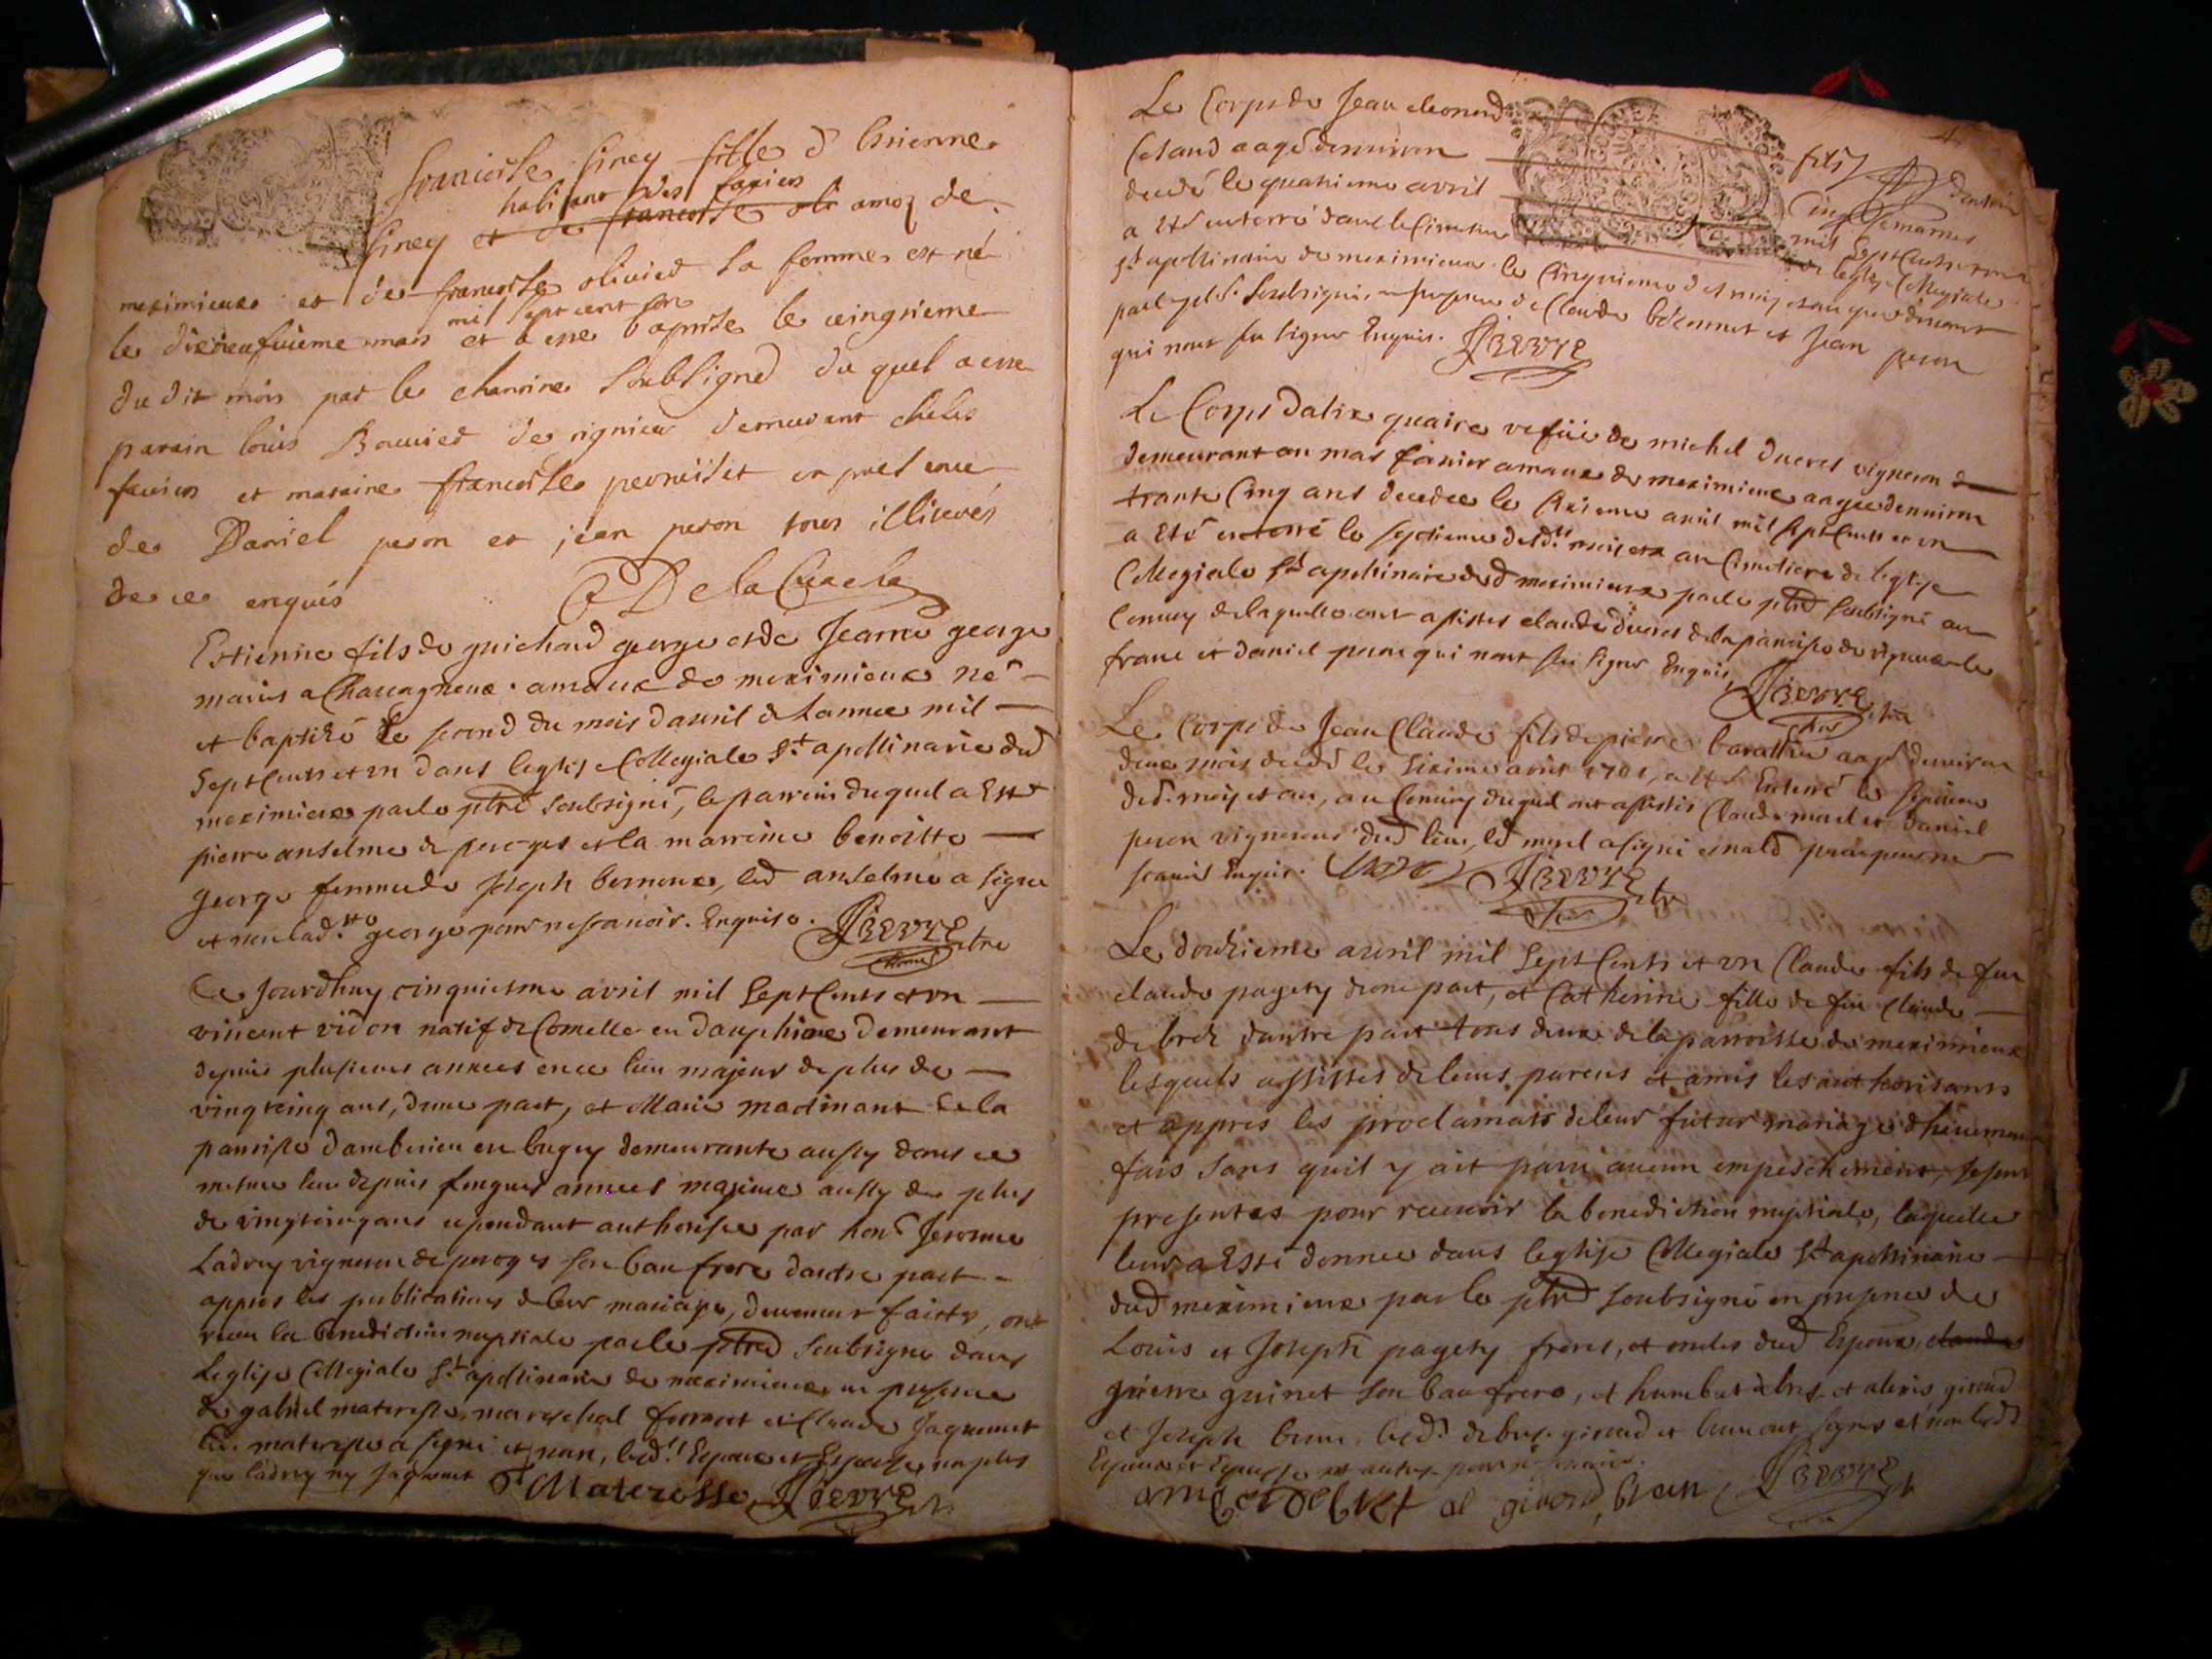 francoise Giney fille d Estienne
habitant des
Giney et de francoise oli amoz de
meximieux et de francoise olivier sa femme est né
mil sept cent
le dixneufuieme mars et a esté baptise le vingtieme
du dit mois par le chanoine soubsigné du quel a esté
parain louis Bouvier de rignieu demeurant
et maraine francoise en presence
de Daniel peron et jean peron tous illiterés
de ce enquis De la Cua
Estienne fils de guichard george et de Jeanne george
mariés a Chavagneux amaux de meximieux né
et baptizé le second du mois dauril de lannee mil
Sept Cents et un dans leglise Collegiale St apollinaire dud
meximieux par le ptre soubsigné, le parrein duquel a Esté
pierre anselme de peroges et la marreine benoitte
george femme de Joseph bernoux, led anselme a signé
et non lad.tte george pour ne scavoir. Enquise. ptre
Ce jourdhuy cinquiesme avril mil Sept Cents et un
vincent vidon natif de Comelle en dauphiné demeurant
depuis plusieurs annees en ce lieu majeur de plus de
vingtcinq ans, dune part, et Marie martinant de la
parroisse dambérieu en bugey demeurante aussy dans ce
mesme lieu depuis longues annees majeure aussy de plus
de vingtcinq ans cependant authorisee par hon. Jerosme
Ladroy vigneron de peroges son beau frere dautre part
appres les publications de leur mariage, deuement faictes, ont
receu la benediction nuptiale par le ptre soubsigné dans
Leglise Collegiale St apollinaire de meximieux en presence
de gabriel materosse mareschal ferrant et Claude Jaquemet
led. materosse a signé et non, lesd.ts Epoux et Epouse non plus
que ladroy ny Jaquemet G Materosse
Le Corps de Jean leonard
aagé denuiron fils
decédé le quatrieme avril Cinq Semaines
a eté enterré dans le Cimetiere mil Sept Cents et un
St apollinaire de meximieux le Cinquieme de leglise Collegiale
par le ptre Soubsigné en presence de Claude et Jean peron
qui nont sceu signer Enquis.
Le Corps dalix quaire vefue de michel ducret vigneron
demeurant au mas amaux de meximieux aagee denuiron
trante Cinq ans decedee le Sixieme auril mil Sept Cents et un
a eté enterré le septieme desd.ts mois et an au Cimetiere de leglise
Collegiale St apollinaire dud meximieux par le ptre soubsigné au
Convoy de laquelle ont assistes claude ducret de la parroisse de
franc et daniel peron qui nont sceu signer Enquis
Le Corps de Jean Claude fils de pierre aagé denuiron
deux mois decédé le Sixieme avril 1701, a eté Enterré le septieme
desd. mois et an, au Convoy duquel ont assistés Claude morel et Daniel
peron vignerons dud lieu, led morel a signé et non led peron pour ne
scavoir Enquis.
Le douzieme avril mil Sept Cents et un Claude fils de feu
claude pagety dune part, et Catherine fille de feu Claude
de bret dautre part tous deux de la parroisse de meximieux
lesquels assistes de leurs parens et amis les authorisants
et appres les proclamats de leur futur mariage dheuement
fais sans quil y ait parru aucun empeschement, se sont
presentes pour recevoir la benediction nuptiale, laquelle
leur a Esté donnee dans leglise Collegiale St apollinaire
dud meximieux par le ptre soubsigné en presence de
Louis et Joseph pagety freres, et oncles dud Epoux, claude
pierre guinet son beau frere, et humbert debret et alexis giroud
et Joseph brun. lesd. debret giroud et brun ont signes et non lesd
Epoux et Epouse et autres pour ne scavoir.
al giroud, brun